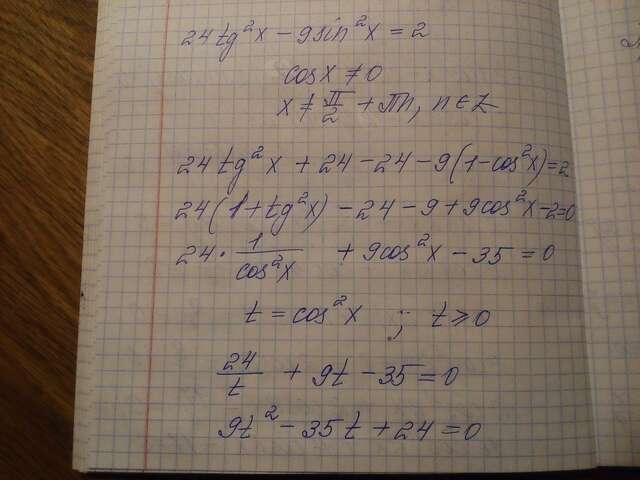 24 tg²x − 9sin²x = 2
cosx ≠ 0
x ≠ π/2 + πn, n ∈ Z
24 tg²x + 24 − 24 − 9(1−cos²x)=2
24(1+tg²x) − 24 − 9 + 9cos²x −2=0
24 · 1/cos²x + 9cos²x − 35 = 0
t = cos²x ; t ⩾ 0
24/t + 9t − 35 = 0
9t² − 35t + 24 = 0